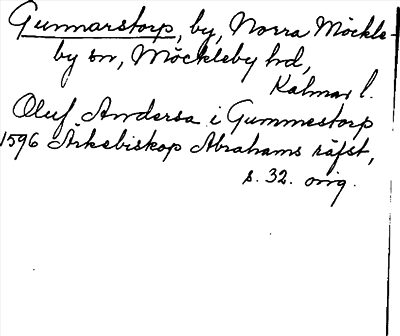 Gunnarstorp, by, Norra Möckle-
by sn, Möckleby hd,
Kalmar l.
Oluf Andersa i Gummestorp
1596 Ärkebiskop Abrahams räfst,
s. 32. orig.